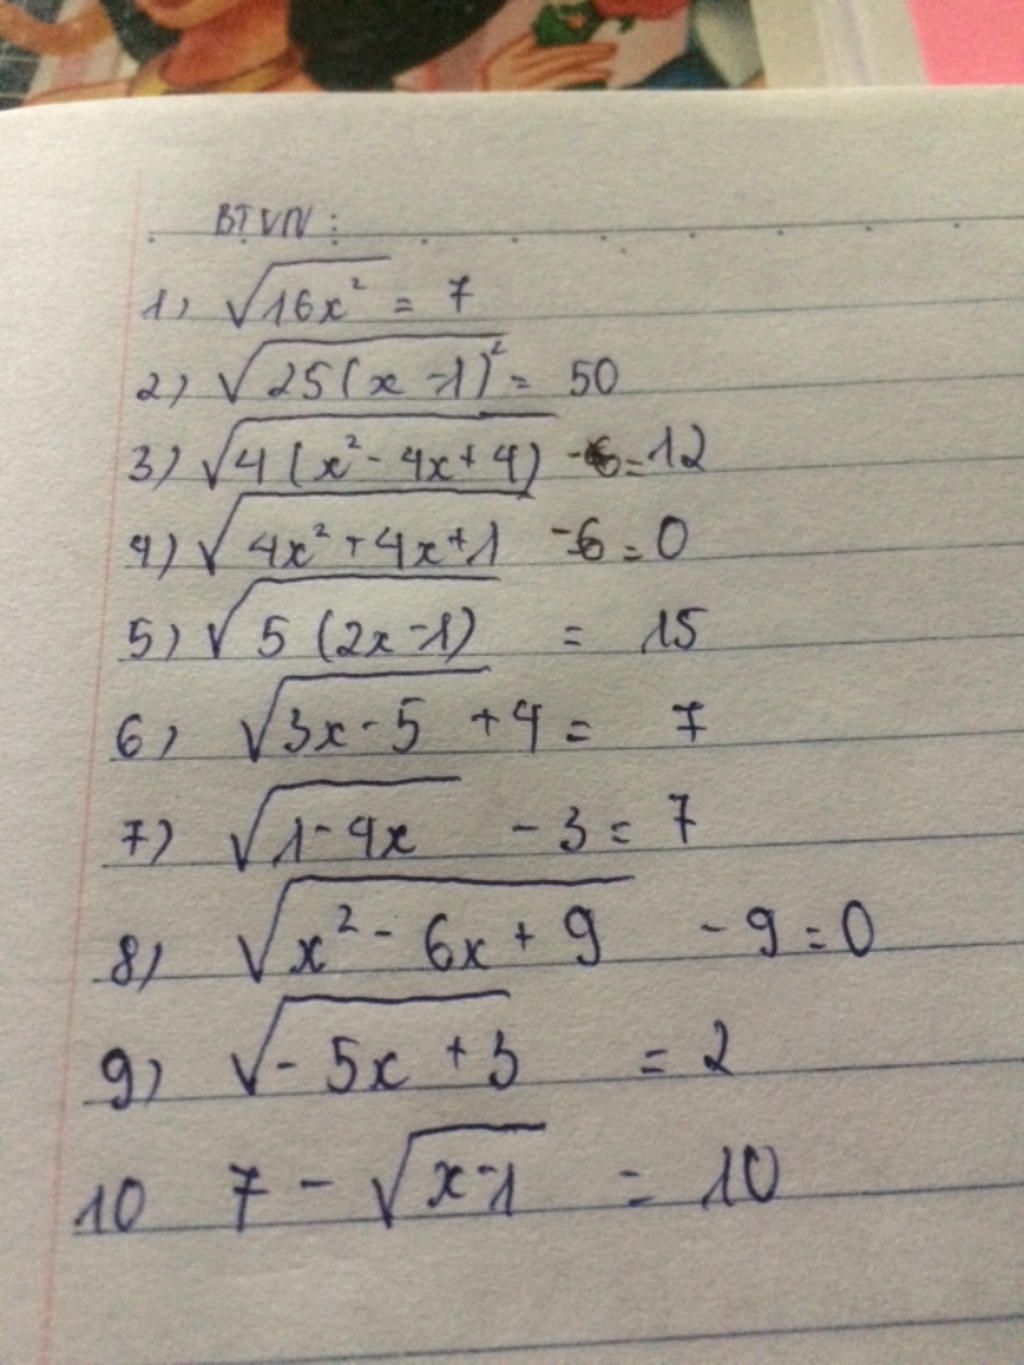 BTVN:
1) √16x² = 7
2) √25(x-1)² = 50
3) √4(x²-4x+4) -6=12
4) √4x²+4x+1 -6=0
5) √5(2x-1) = 15
6) √3x-5 +4= 7
7) √1-4x -3=7
8) √x²-6x+9 -9=0
9) √-5x+3 =2
10 7-√x-1 = 10